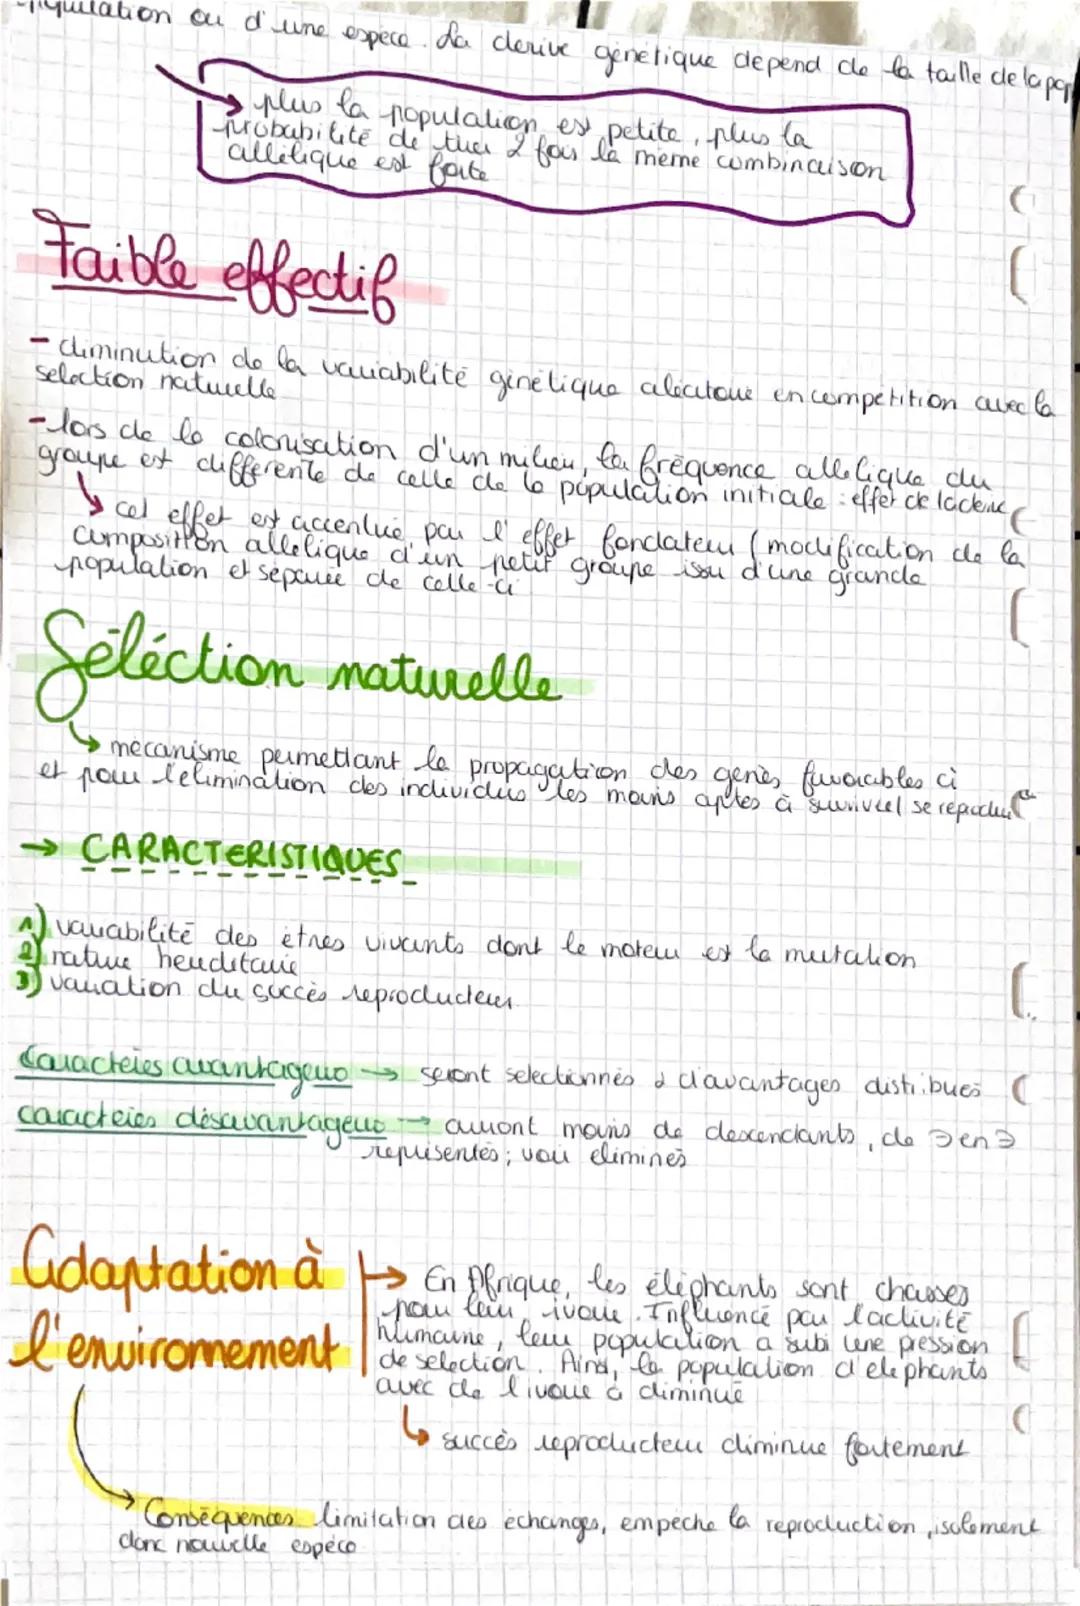 ou d'une espèce. La dérive génétique dépend de la taille de la pop
plus la population est petite, plus la
probabilité de tirer 2 fois la même combinaison
allélique est forte
Faible effectif
- diminution de la variabilité génétique aléatoire en compétition avec la
selection naturelle
- lors de la colonisation d'un milieu, la fréquence allélique du
groupe est différente de celle de la population initiale : effet de la dérive
cet effet est accentué par l'effet fondateur (modification de la
composition allélique d'un petit groupe issu d'une grande
population et séparée de celle-ci
Séléction naturelle
mécanisme permettant la propagation des genès favorables ci
et pour l'élimination des individus les moins aptes à survivre/ se reproduire
→ CARACTERISTIQUES
1) variabilité des êtres vivants dont le moteur est la mutation
2) nature héréditaire
3) variation du succès reproducteur
Caractères avantageux → seront selectionnés & d'avantages distribués
caractères désavantageux → auront moins de descendants, de - en -
représentés ; voir éliminés
Adaptation à
l'environnement
→ En Afrique, les éléphants sont chassés
pour leur ivoire. Influencé par l'activité
humaine, leur population a subi une pression
de selection. Ainsi, la population d'éléphants
avec de l'ivoire a diminué
succès reproducteur diminue fortement
Conséquences limitation des échanges, empêche la reproduction, isolement
donc nouvelle espèce